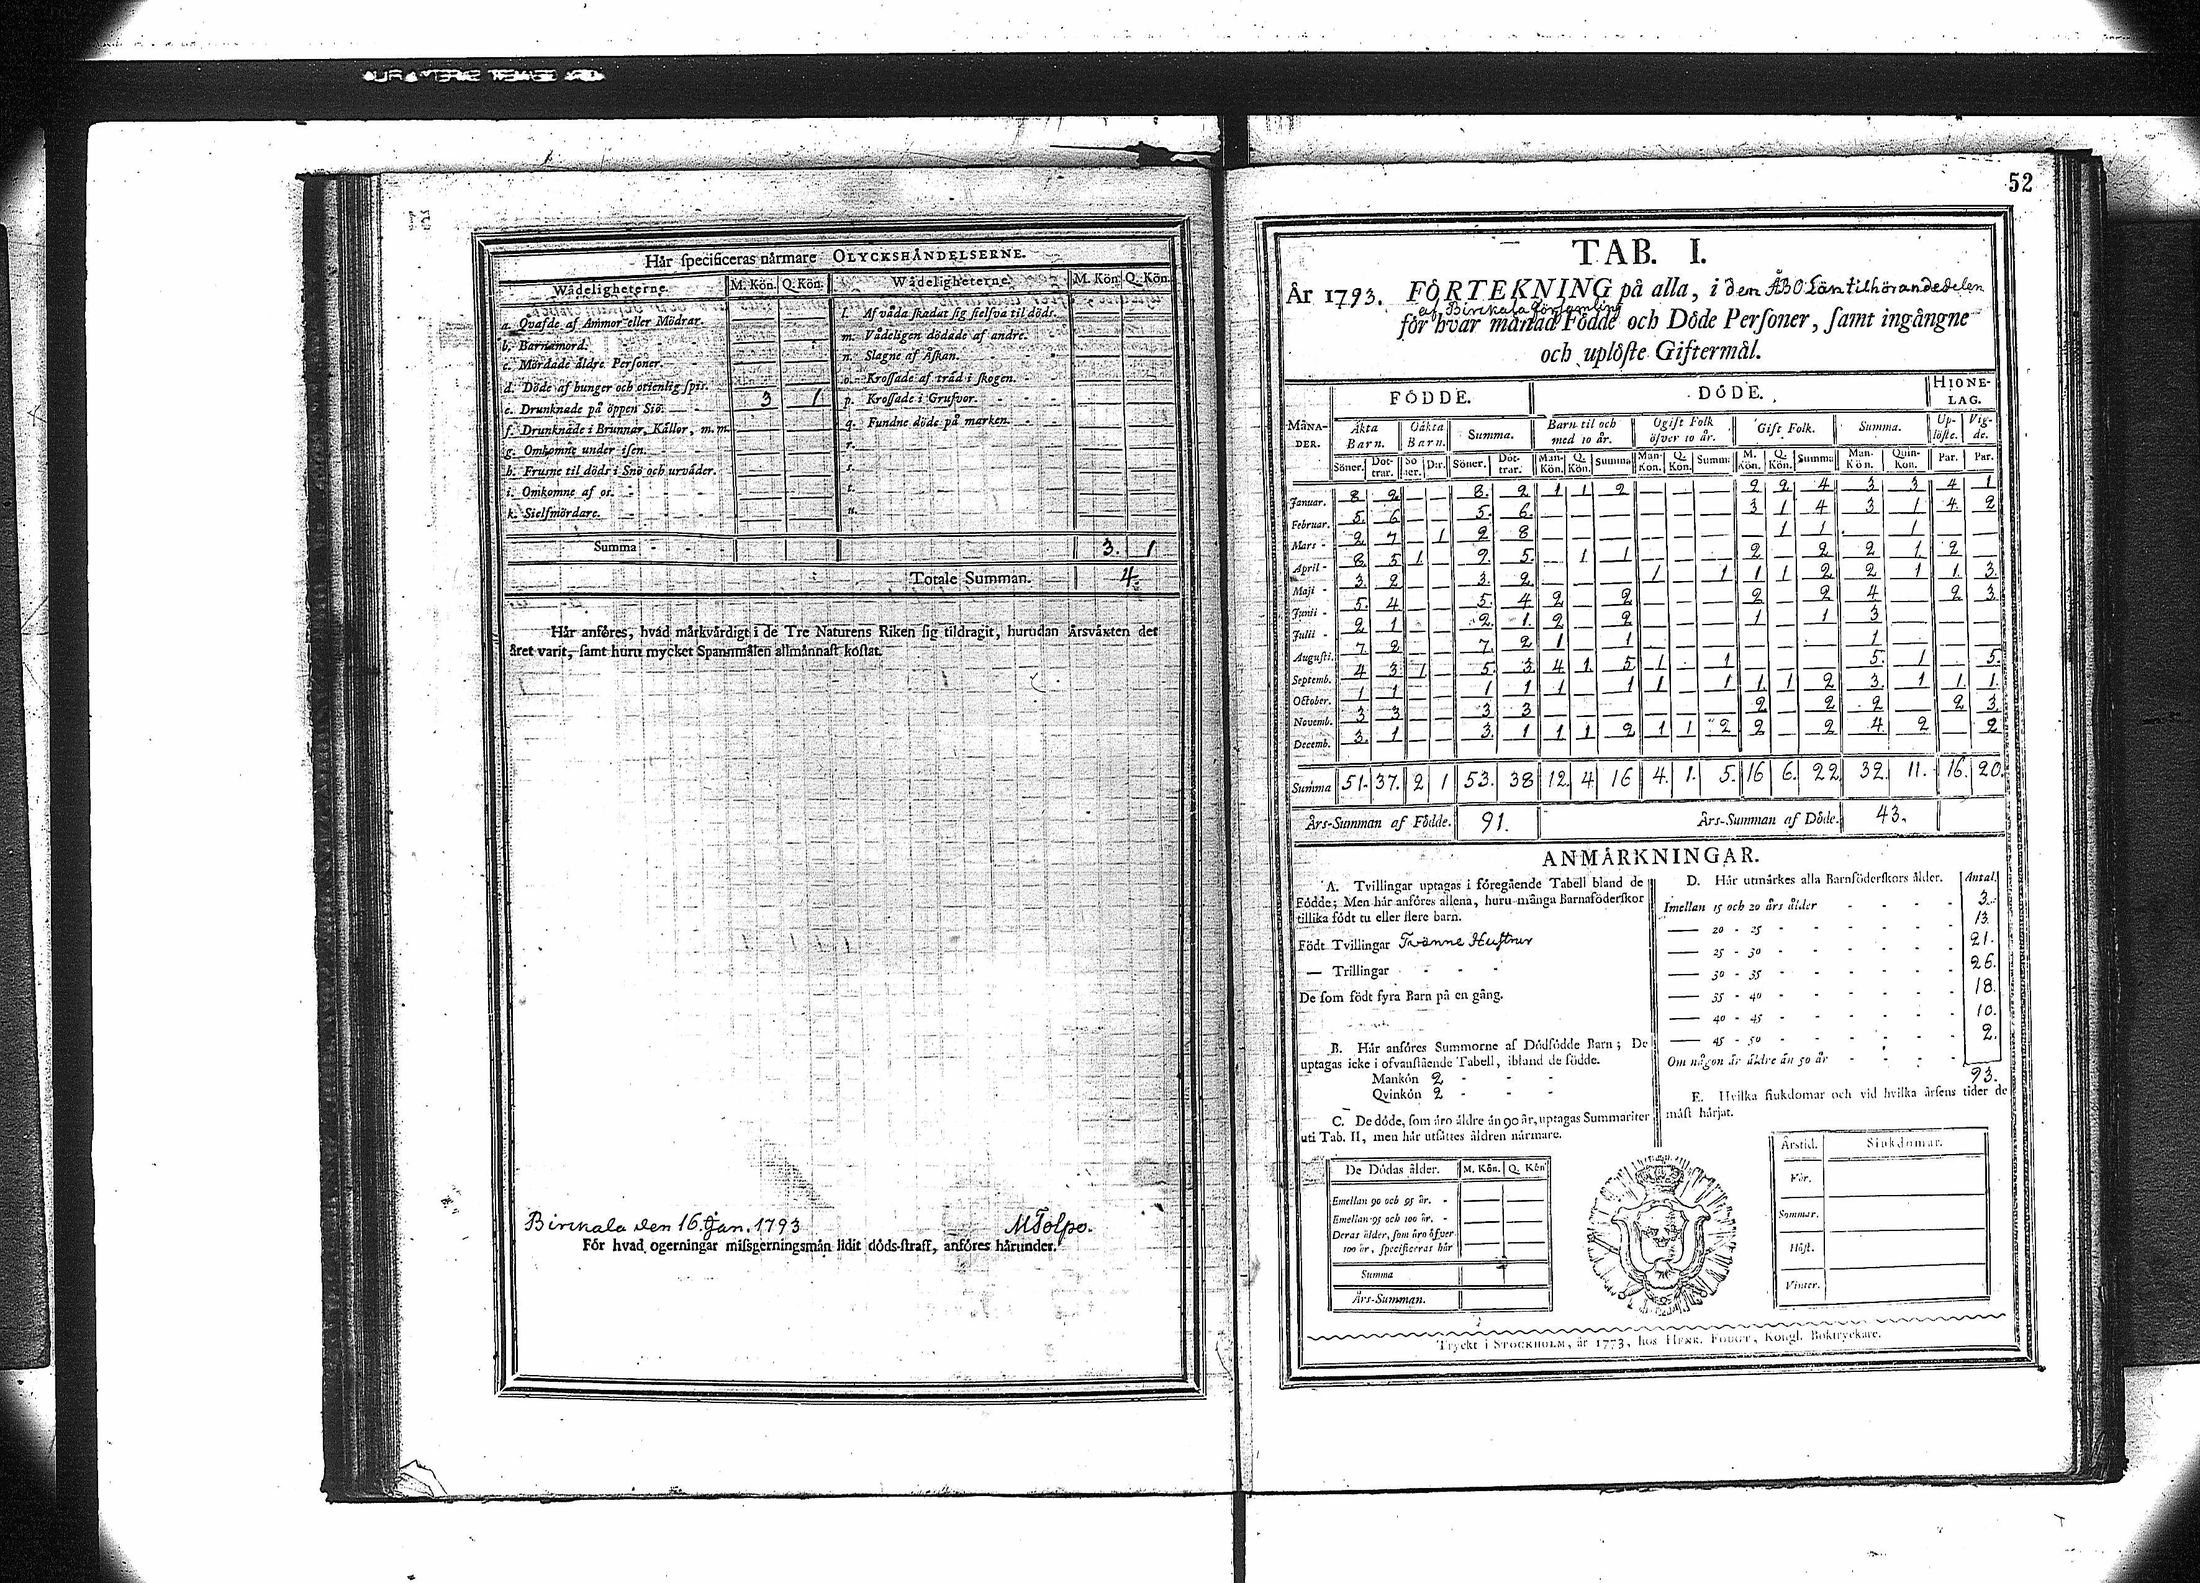 51
Här specificeras närmare OLYCKSHÄNDELSERNE.
Wådeligheterne. M. Kön. Q. Kön. Wådeligheterne. M. Kön. Q. Kön.
a. Qvafde af Ammor eller Mödrar. l. Af våda skadat sig sielfva til döds.
b. Barnamord. m. Vådeligen dödade af andre.
c. Mördade äldre Personer. n. Slagne af Åskan.
d. Döde af hunger och otienlig spis. o. Krossade af träd i skogen.
e. Drunknade på öppen Siö. 3 1 p. Krossade i Grufvor.
f. Drunknade i Brunnar, Källor, m. m. q. Fundne döde på marken.
g. Omkomne under isen. r.
h. Frusne til döds i Snö och urväder. s.
i. Omkomne af os. t.
k. Sielfmördare. u.
Summa 3. 1
Totale Summan. 4.
Här anföres, hvad märkvärdigt i de Tre Naturens Riken sig tildragit, hurudan Årsväxten det
året varit, samt huru mycket Spannmålen allmännast kostat.
Birckala den 16 Jan. 1793 M Tolpo.
För hvad ogerningar missgerningsmän lidit döds-straff, anföres härunder.
52
TAB. I.
År 1793. FÖRTEKNING på alla, i den ÅBO Län tilhörande delen
af Birckala församling
för hvar månad Födde och Döde Personer, samt ingångne
och uplöste Giftermål.
FÖDDE. DÖDE. HIONELAG.
MÅNADER. Äkta Barn. Oäkta Barn. Summa. Barn til och med 10 år. Ogift Folk öfver 10 år. Gift Folk. Summa. Uplöste. Vigde.
Söner. Döttrar. Söner. D:r. Söner. Döttrar. Man-Kön. Q. Kön. Summa Man-Kön. Q. Kön. Summa M. Kön. Q. Kön. Summa Man-Kön. Quin-Kon. Par. Par.
Januar. 8 2 — — 8. 2 1 1 2 — — — 2 2 4 3 3 4 1
Februar. 5. 6 — — 5. 6. — — — — — — 3 1 4 3 1 4. 2
Mars - 2 7 — 1 2 8 — — — — — — — 1 1 . 1 — —
April - 8 5 1 — 9. 5. — 1 1 — — — 2 — 2 2 1 2 —
Maji - 3. 2 — — 3. 2 — — — 1 — 1 1 1 2 2 1 1. 3
Junii - 5. 4 — — 5. 4 2 — 2 — — — 2 — 2 4 — 2 3
Julii - 2 1 — — 2 1. 2 — 2 — — — 1 — 1 3 — — —
Augusti. 7 2 — — 7. 2 1 — 1 — — — — — — 1 — — —
Septemb. 4 3 1 — 5. 3 4 1 5 1 - 1 — — — 5. 1 — 5.
October. 1 1 — — 1 1 1 — 1 1 — 1 1 1 2 3. 1 1. 1.
Novemb. 3 3 — — 3 3 — — — — — — 2 — 2 2 — 2 3
Decemb. 3. 1 — — 3. 1 1 1 2 1 1 2 2 — 2 4 2 — 2
Summa 51. 37. 2 1 53. 38 12. 4 16 4. 1. 5. 16 6. 22 32 11. 16. 20.
Års-Summan af Födde. 91. Års-Summan af Döde. 43.
ANMÄRKNINGAR.
A. Tvillingar uptagas i föregående Tabell bland de
Födde; Men här anföres allena, huru många Barnaföderskor
tillika födt tu eller flere barn.
Födt Tvillingar Tvänne Hustrur
— Trillingar
De som födt fyra Barn på en gång.
B. Här anföres Summorne af Dödfödde Barn; De
uptagas icke i ofvanstående Tabell, ibland de födde.
Mankön 2
Qvinkön 2
C. De döde, som äro äldre än 90 år, uptagas Summariter
uti Tab. II, men här utsättes åldren närmare.
De Dödas ålder. M. Kön. Q. Kön
Emellan 90 och 95 år.
Emellan 95 och 100 år.
Deras ålder, som äro öfver
100 år, specificeras här
Summa
Års-Summan.
D. Här utmärkes alla Barnföderskors ålder. Antal.
Imellan 15 och 20 års ålder 3.
— 20 - 25 13
— 25 - 30 21.
— 30 - 35 26.
— 35 - 40 18.
— 40 - 45 10.
— 45 - 50 2.
Om någon är äldre än 50 år
93.
E. Hvilka siukdomar och vid hvilka årsens tider de
mäst härjat.
Årstid. Siukdomar.
Vår.
Sommar.
Höst.
Vinter.
Tryckt i STOCKHOLM, år 1773, hos HENR. FOUGT, Kongl. Boktryckare.